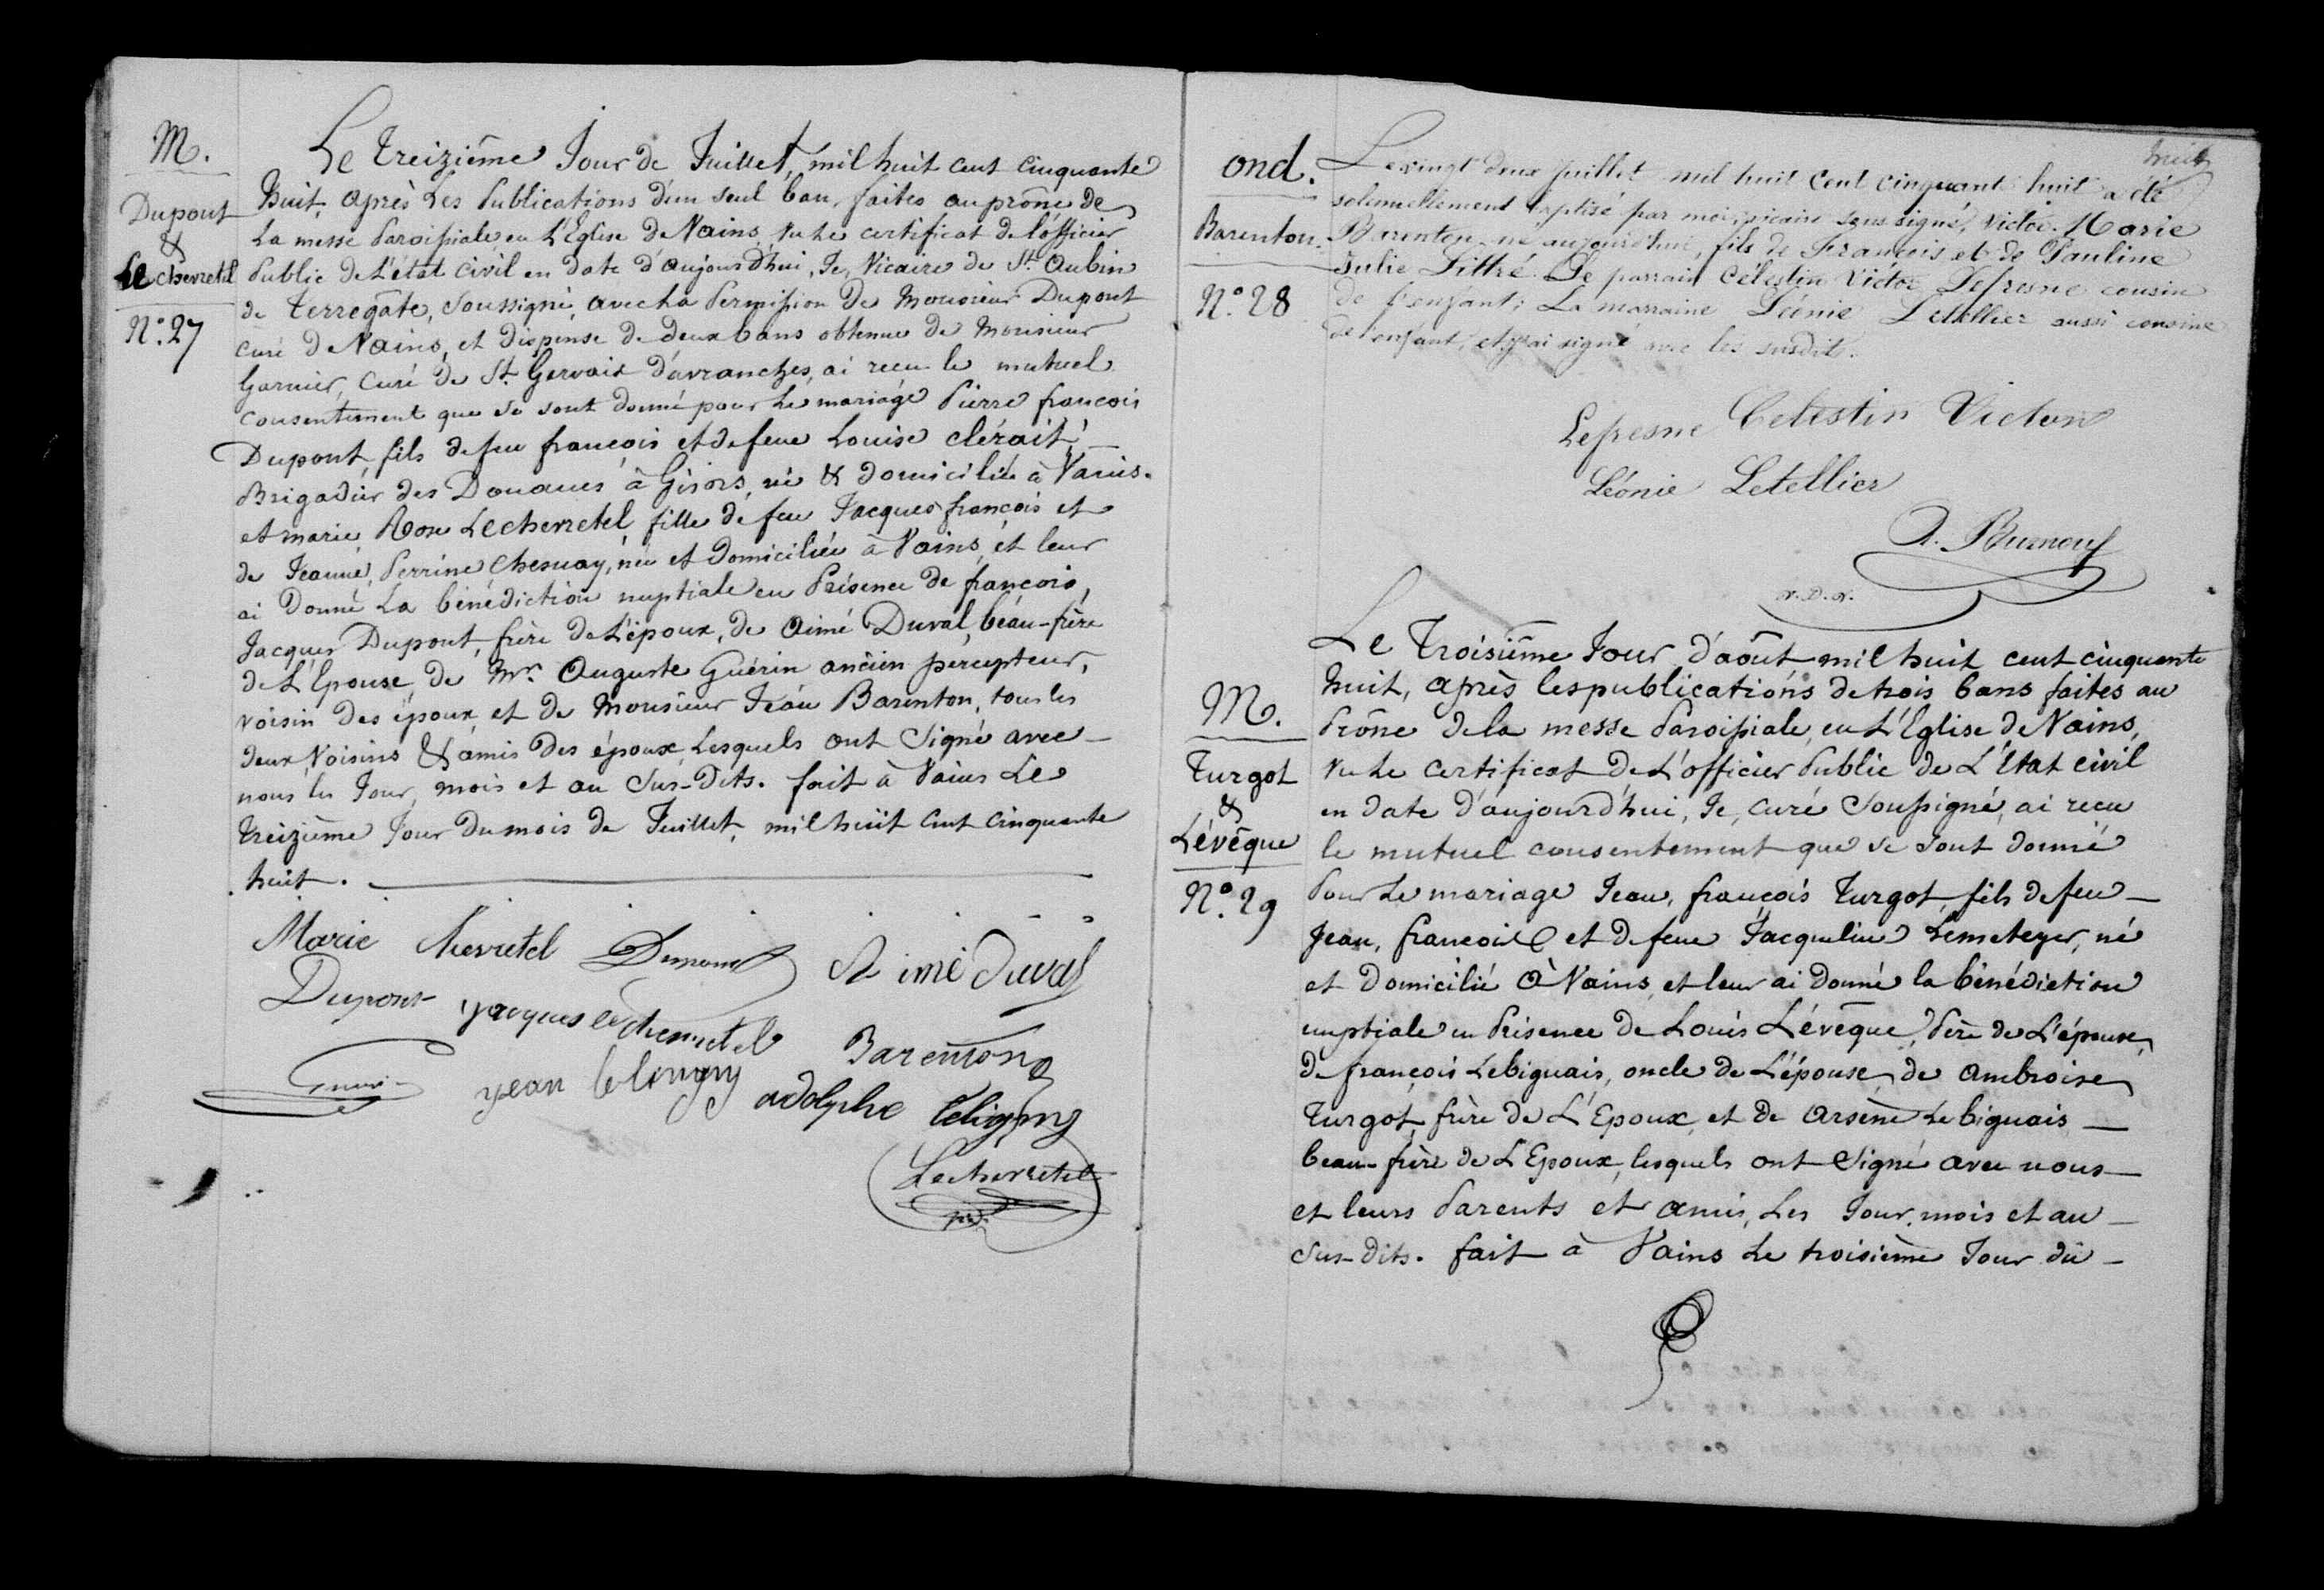 M.
Dupont
&
Lechevretel
N.° 27
Le treizième Jour de Juillet, mil huit cent cinquante
huit, après Les Publications d'un seul ban, faites au prône de
La messe Paroissiale en L'Eglise de Vains, vu Le certificat de l'officier
Public de L'état civil en date d'aujourd'hui, Je, Vicaire de St Aubin
de terregate, soussigné, avec La Permission de Monsieur Dupont
curé de Vains, et dispense de deux bans obtenue de Monsieur
Garnier, curé de St Gervais d'avranches, ai reçu le mutuel
consentement que se sont donné pour Le mariage Pierre françois
Dupont, fils de feu françois et de feue Louise
Brigadier des Douanes à Gisors, né & domicilié à Vains.
et marie, Rose Lechevretel, fille de feu Jacques françois et
de Jeanne, Perrine Chesnay, née et domiciliée à Vains, et leur
ai donné La bénédiction nuptiale en Présence de françois,
Jacques Dupont, frère de L'époux, de Aimé Duval, beau-frère
de L'Epouse, de Mr. Auguste Guérin ancien percepteur,
voisin des époux et de Monsieur Jean Barenton, tous les
deux Voisins & amis des époux, Lesquels ont Signé avec
nous les Jour, mois et an Sus-Dits. fait à Vains Le
treizième Jour du mois de Juillet, mil huit cent cinquante
huit.
Marie Chevretel Dupont Aimé Duval
Dupont Jacques lechevretel Barenton
jean adolphe
Lechevretel
ond.
Barenton.
N.° 28
Le vingt deux Juillet mil huit cent cinquante huit a été
solennellement baptisé par moi, vicaire sous signé, Victor-Marie
Barenton né aujourd'hui, fils de François et de Pauline
Julie Littré. Le parrain Célestin Victor Lefresne cousin
de l'enfant; La marraine Léonie Letellier aussi cousine
de l'enfant, et j'ai signé avec les susdits.
Lefresne Celestin Victor
Léonie Letellier
A. Burnouf
v.D.v.
M.
Turgot
&
Lévêque
N.° 29
Le Troisième Jour d'août mil huit cent cinquante
huit, après les publications de trois bans faites au
Prône de la messe Paroissiale, en L'Eglise de Vains,
vu Le certificat de L'officier Public de L'Etat civil
en date d'aujourd'hui, Je, curé Soussigné, ai reçu
le mutuel consentement que se sont donné
Pour Le mariage Jean, françois Turgot, fils de feu
Jean, françois et de feue Jacqueline Lemeteyer, né
et domicilié à Vains, et leur ai donné la bénédiction
nuptiale en Présence de Louis Lévêque, Père de L'épouse,
de françois Lebiguais, oncle de L'épouse, de Ambroise
Turgot, frère de L'Epoux, et de Arsène Lebiguais
beau-frère de L'Epoux, lesquels ont Signé avec nous
et leurs Parents et amis, Les Jour, mois et an
Sus-dits. fait à Vains Le troisième Jour du